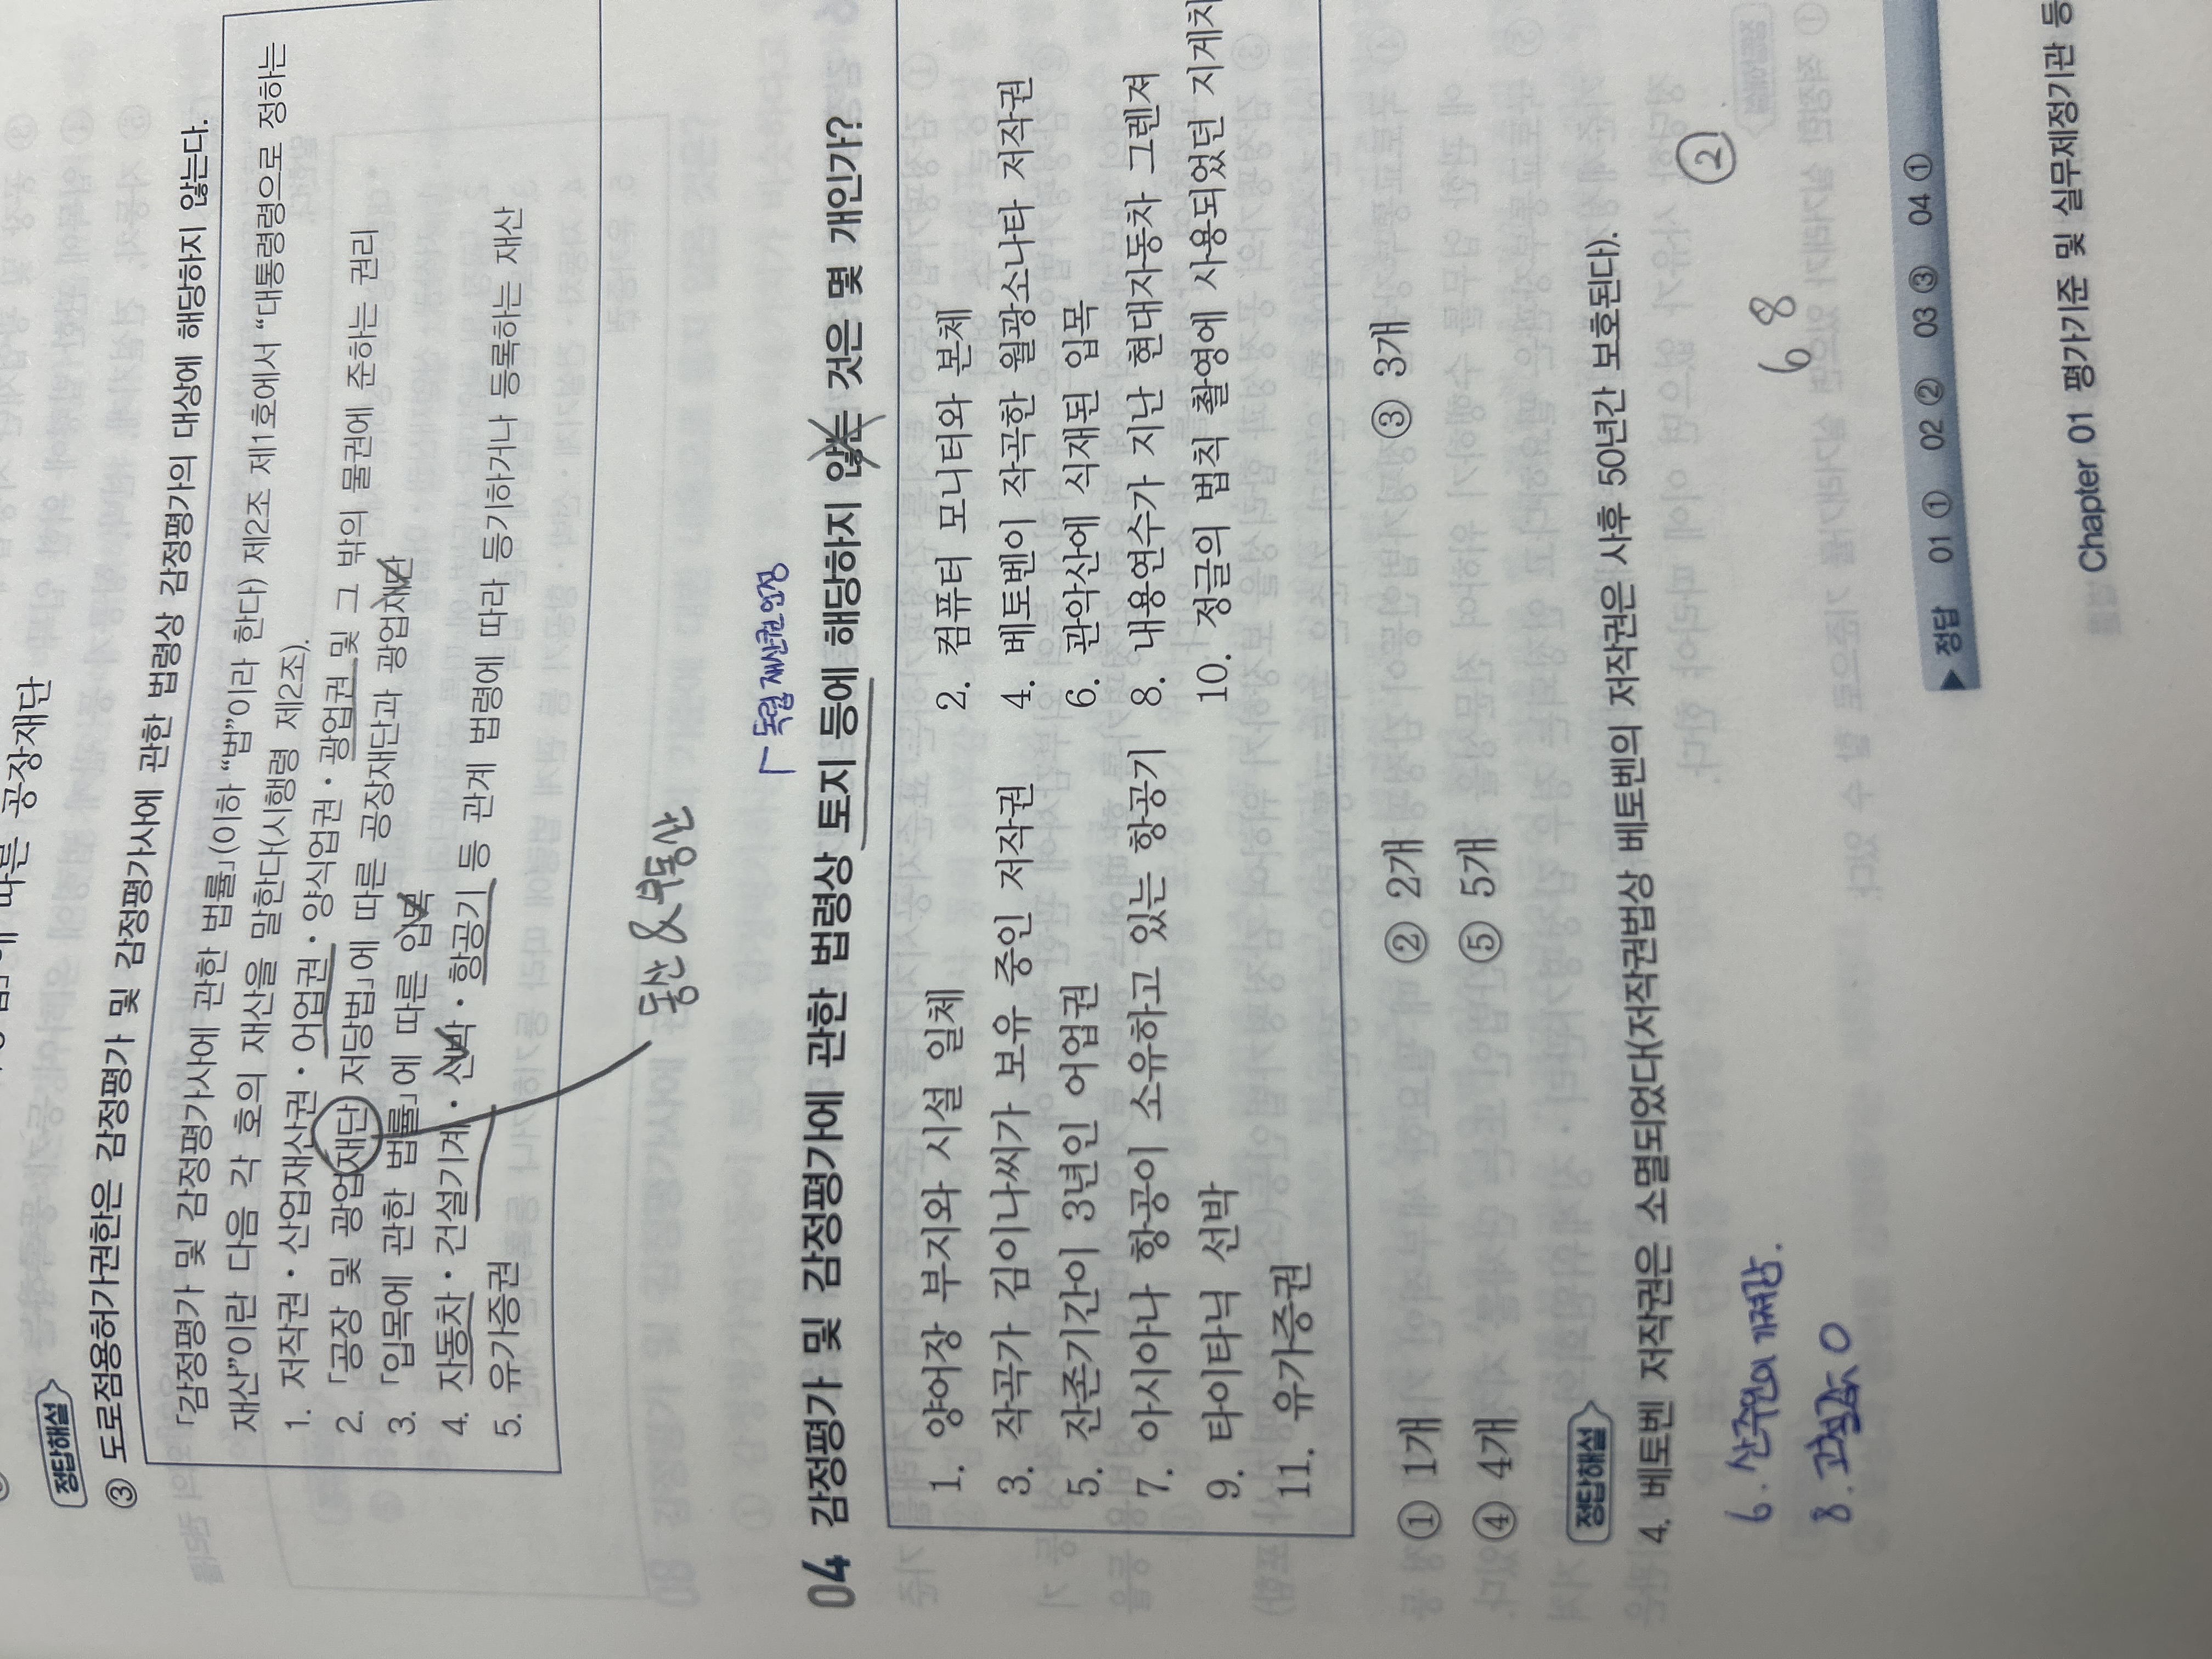 따른 공장재단
정답해설
③ 도로점용허가권한은 감정평가 및 감정평가사에 관한 법령상 감정평가의 대상에 해당하지 않는다.
「감정평가 및 감정평가사에 관한 법률」(이하 “법”이라 한다) 제2조 제1호에서 “대통령령으로 정하는
재산”이란 다음 각 호의 재산을 말한다(시행령 제2조).
1. 저작권·산업재산권·어업권·양식업권·광업권 및 그 밖의 물권에 준하는 권리
2. 「공장 및 광업재단 저당법」에 따른 공장재단과 광업재단
3. 「입목에 관한 법률」에 따른 입목
4. 자동차·건설기계·선박·항공기 등 관계 법령에 따라 등기하거나 등록하는 재산
5. 유가증권
동산 & 부동산
독립 재산권 인정
04 감정평가 및 감정평가에 관한 법령상 토지 등에 해당하지 않는 것은 몇 개인가?
1. 양어장 부지와 시설 일체 2. 컴퓨터 모니터와 본체
3. 작곡가 김이나씨가 보유 중인 저작권 4. 베토벤이 작곡한 월광소나타 저작권
5. 잔존기간이 3년인 어업권 6. 관악산에 식재된 입목
7. 아시아나 항공이 소유하고 있는 항공기 8. 내용연수가 지난 현대자동차 그렌져
9. 타이타닉 선박 10. 정글의 법칙 촬영에 사용되었던 지게차
11. 유가증권
① 1개 ② 2개 ③ 3개
④ 4개 ⑤ 5개
정답해설
4. 베토벤 저작권은 소멸되었다(저작권법상 베토벤의 저작권은 사후 50년간 보호된다).
②
6 8
6. 산주인의 가져감.
8. 고철값도 O
▶ 정답 01 ① 02 ② 03 ③ 04 ①
Chapter 01 평가기준 및 실무제정기관 등